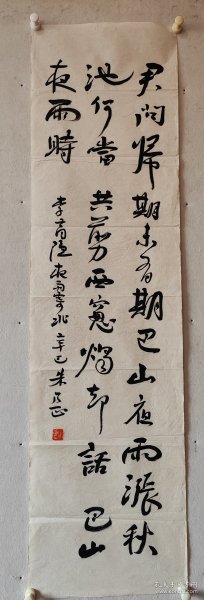 君问归期未有期巴山夜雨涨秋
池何當共剪西窗燭却話巴山
夜雨時
李商隐夜雨寄北辛巳朱乃正